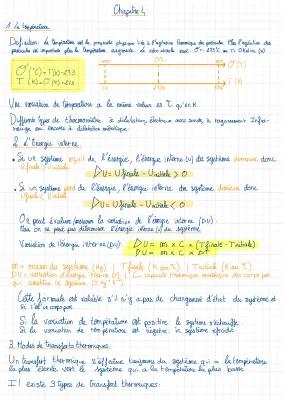 Chapitre 4
1. La température
Définition: la température est la propriété physique liée à l'agitation thermique des particules. Plus l'agitation des
particules est importante plus la température augmente. Le zéro absolu vaut: -273°C ou 0 Kelvin (K)
θ (°C) = T(K) - 273
T (K) = θ(°C) + 273
θ (°C)
T (K)
Une variation de température a la même valeur en °C qu'en K.
Différents types de thermomètres: à dilatation, électrique avec sonde, à rayonnement Infra-
rouge ou encore à dilatation métallique.
2. L'énergie interne
• Si un système reçoit de l'énergie, l'énergie interne (U) du système donc
Ufinale > Uinitiale
DU = Ufinale - Uinitiale > 0
• Si un système perd de l'énergie, l'énergie interne du système diminue donc
Ufinale < Uinitiale
DU = Ufinale - Uinitiale < 0
On peut évaluer/mesurer la variation de l'énergie interne (DU).
Mais on ne peut pas déterminer l'énergie interne (U) du système.
Variation de l'énergie interne (DU): DU = m x C x (Tfinale - Tinitiale)
DU = m x C x ΔT
m = masse du système (Kg) | Tfinale (K ou °C) | Tinitiale (K ou °C)
DU = variation d'énergie interne (J) | C = capacité thermique massique du corps pur
qui constitue le système
Cette formule est valable s'il n'y a pas de changement d'état du système et
si c'est un corps pur.
Si la variation de température est positive le système s'échauffe
Si la variation de température est négative le système refroidit
3. Modes de transferts thermiques
Un transfert thermique s'effectue toujours du système qui a la température
la plus élevée vers le système qui a la température la plus basse
Il existe 3 types de transferts thermiques: